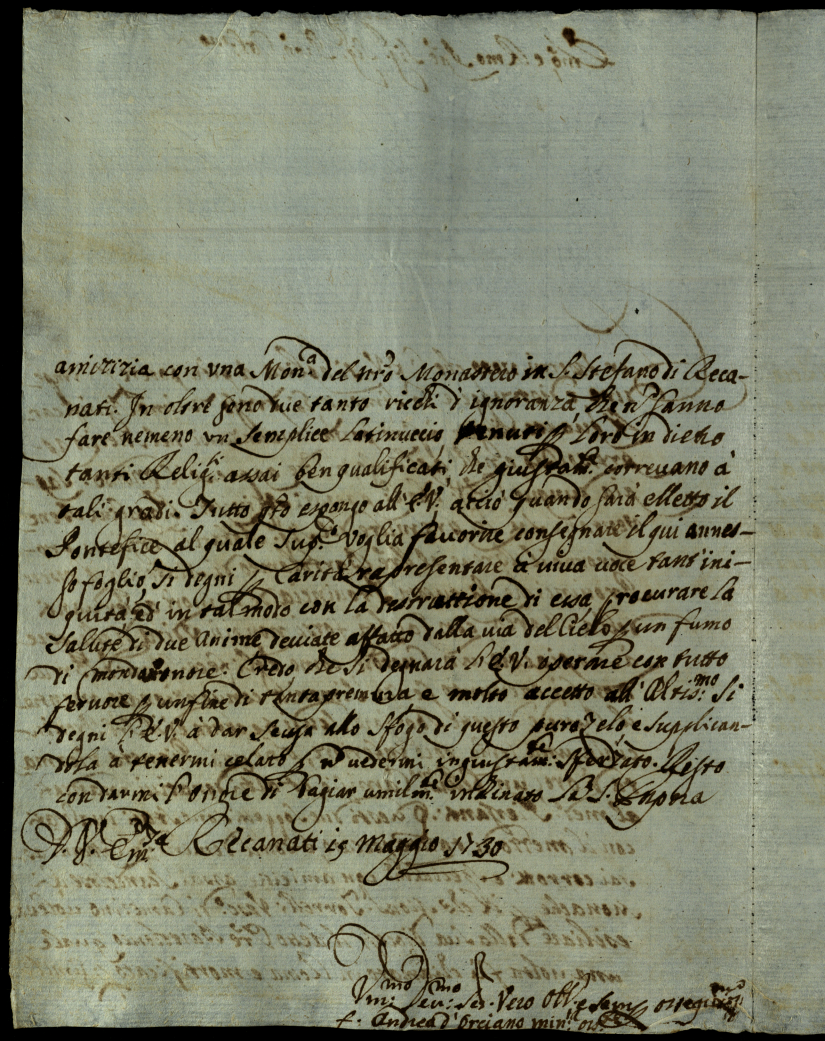 amicizia con una Mon.ª del nro Monastero in S. Stefano di Reca-
nati. In oltre sono due tanto riechi d'ignoranza, che nº sanno
fare nemeno un semplice Latinuccio, tenuti p loro in dietro
tanti Relig.si assai ben qualificati, che giustam.te correvano à
tali gradi. Tutto qto espongo all'E.V. acciò quando sarà elletto il
Pontefice al quale sup.co voglia favorire consegnare il qui annes-
so foglio, si degni p Carità rapresentare à viva voce tant'ini-
quità, ed in tal modo con la distruttione di essa procurare la
salute di due anime deviate affatto dalla via del Cielo p un fumo
di mondan onore. Credo che si degnarà l'E.V. operare con tutto
fervore p un fine di tanta premura e molto accetto all'Altis.mo Si
degni l'E.V. à dar scusa allo sfogo di questo puro Zelo, e supplican-
dola à tenermi celato p nº vedermi ingiustam.te sferzato. Resto
con darmi l'onore di bagiar umilm.te inchinato la S. Porpora
D. V. Em.za Recanati 19 Maggio 1730
Um.mo Dev.mo Ser. Vero Obl. e semp osseq
f. Andrea d'Orciano min.